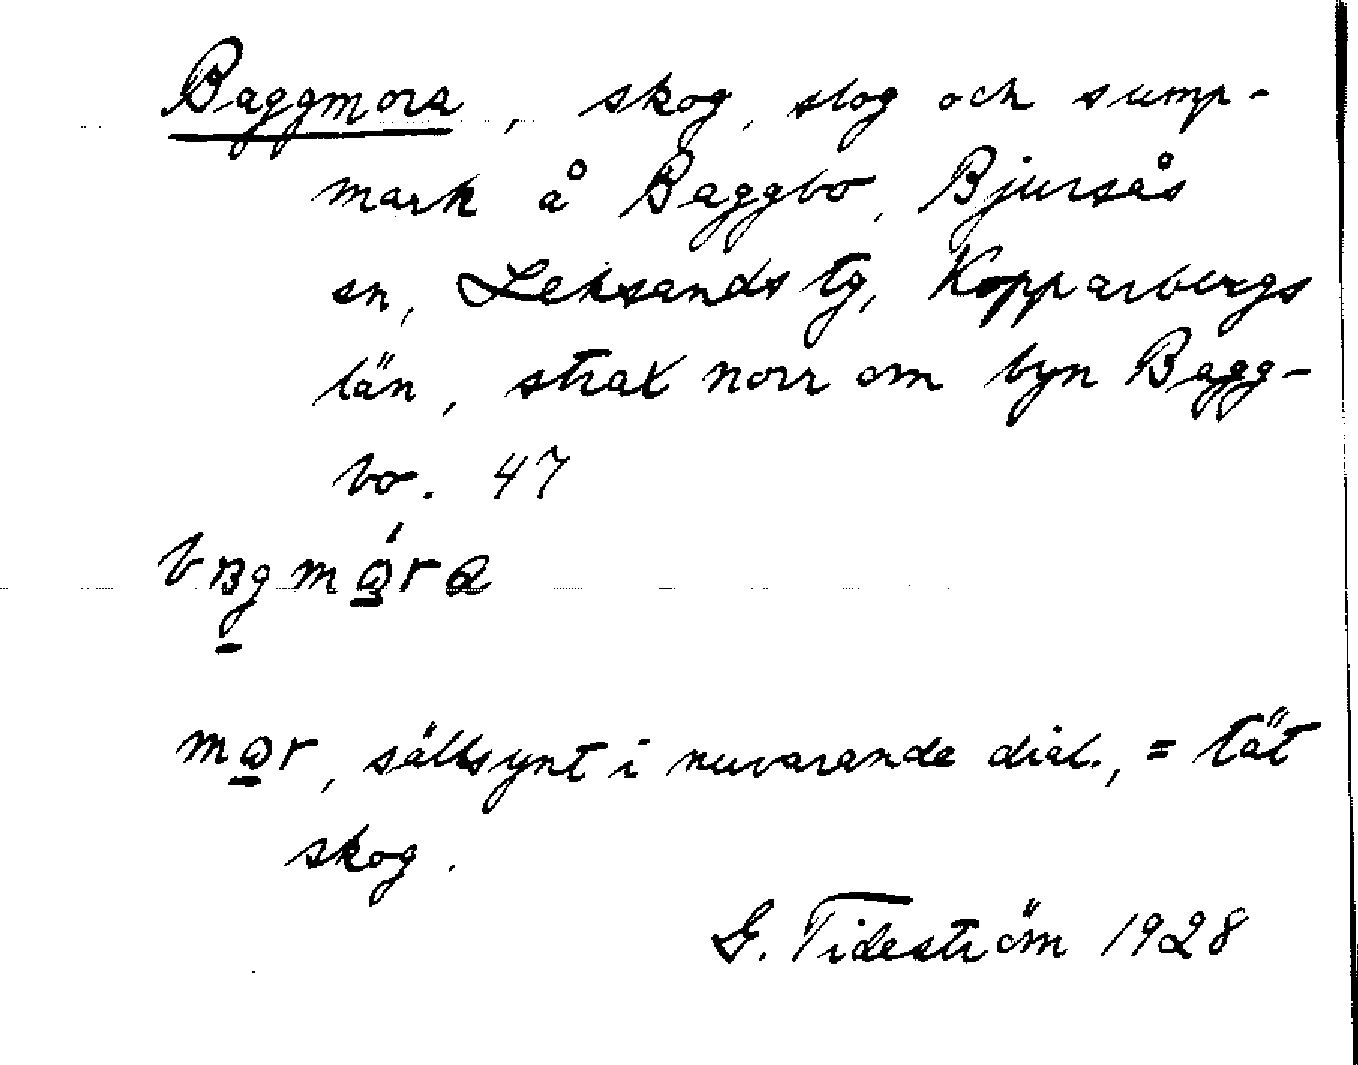 Baggmora, skog, slog och sump-
mark å Baggbo, Bjursås
sn, Leksands tg, Kopparbergs
län, strax norr om byn Bagg-
bo. 47
mor, sällsynt i nuvarande dial., = tät
skog.
G. Tideström 1928